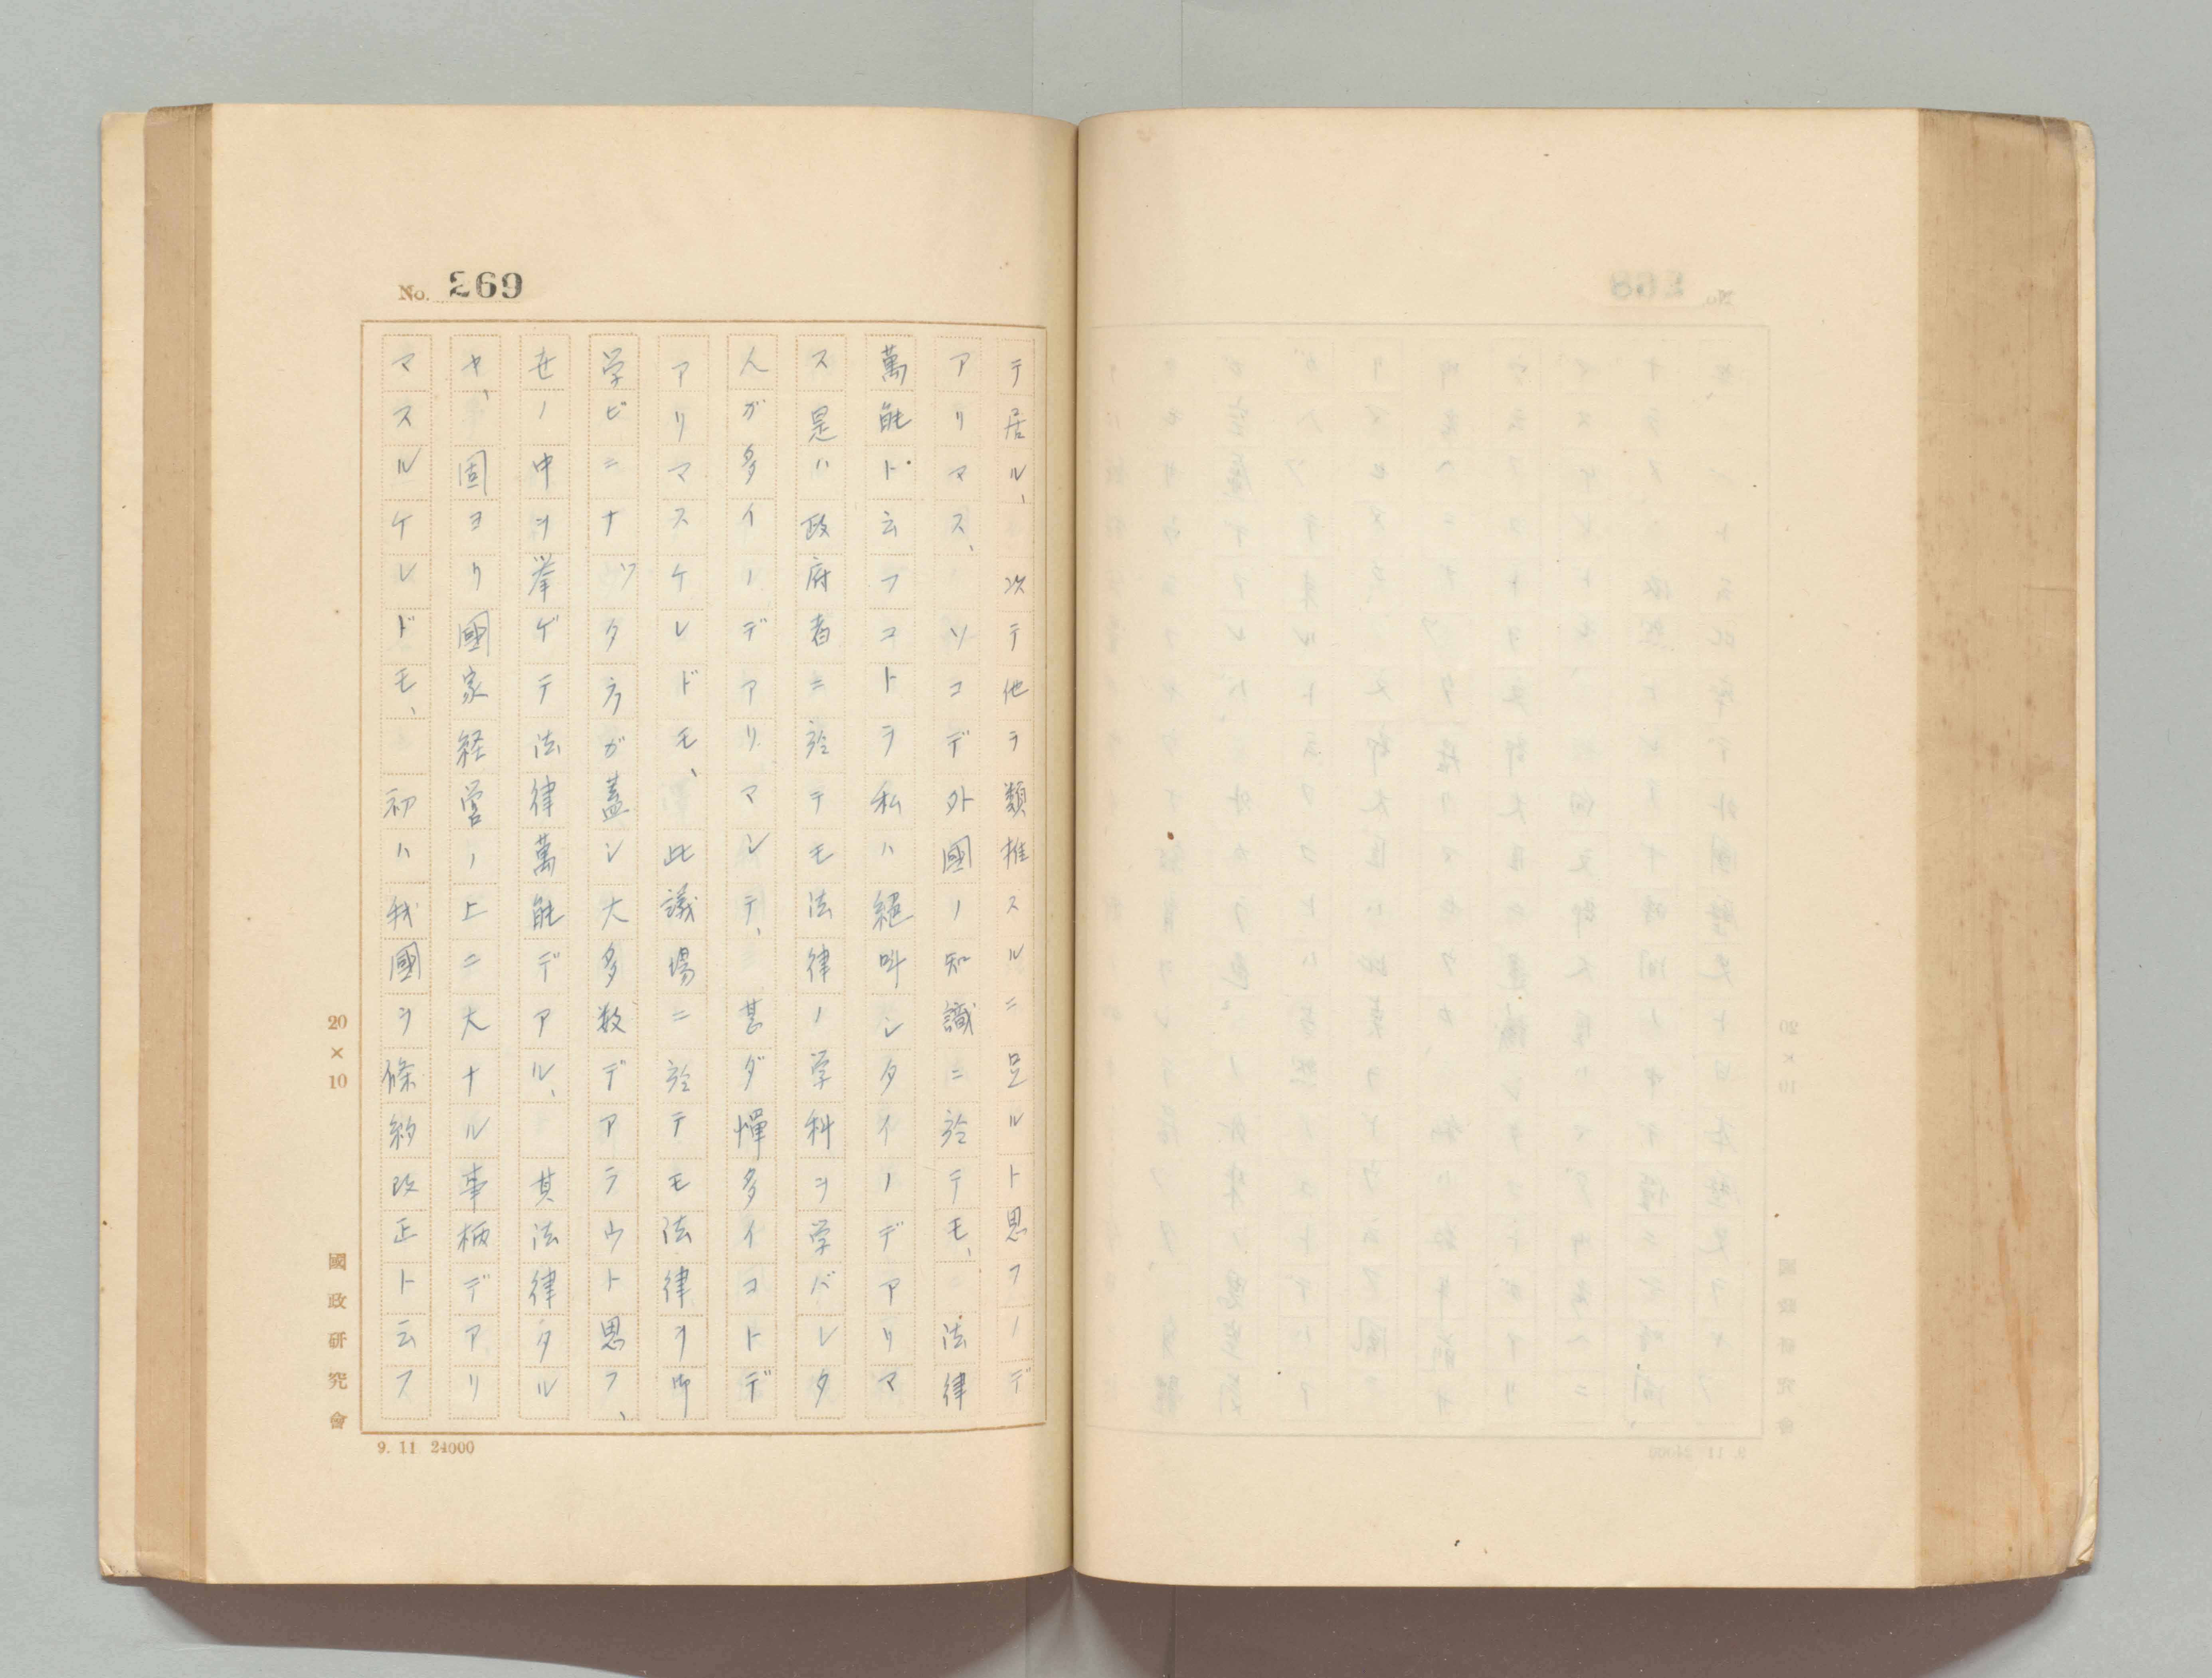 No. 269
テ居ル、次テ他ヲ類推スルニ足ルト思フノデ
アリマス、ソコデ外國ノ知識ニ於テモ、法律
萬能ト云フコトヲ私ハ絕叫シタイノデアリマ
ス是ハ政府者ニ於テモ法律ノ学科ヲ学バレタ
人ガ多イノデアリマシテ、甚ダ憚多イコトデ
アリマスケレドモ、此議場ニ於テモ法律ヲ御
学ビニナツタ方ガ蓋シ大多数デアラウト思フ、
世ノ中ヲ挙ゲテ法律萬能デアル、其法律タル
ヤ、固ヨリ國家経営ノ上ニ大ナル事柄デアリ
マスルケレドモ、初ハ我國ヲ條約改正ト云フ
20×10
國政研究會
9. 11 24000